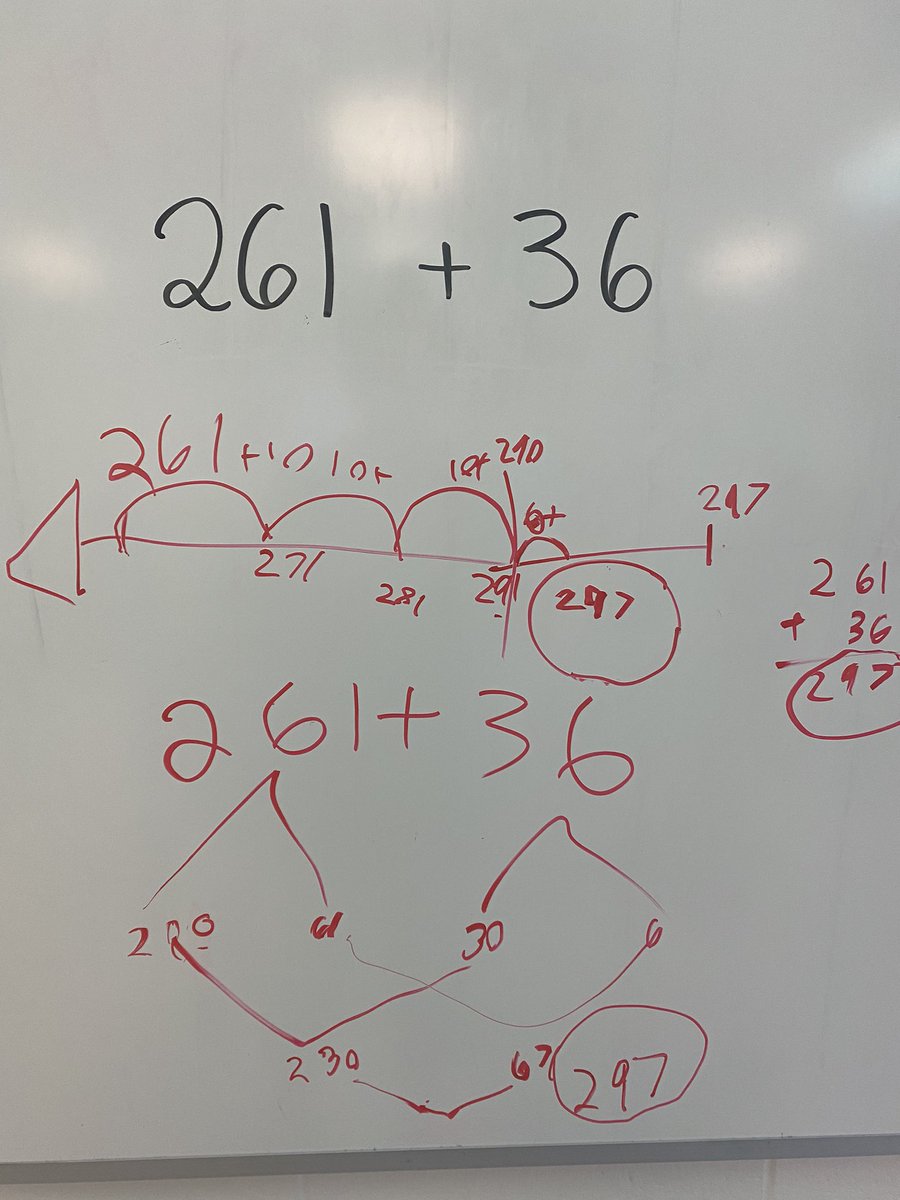 261 + 36
261 +10 10+ 10+ 290
6+ 297
271 281 291 297
261
+ 36
297
261 + 36
200 61 30 6
230 67 297